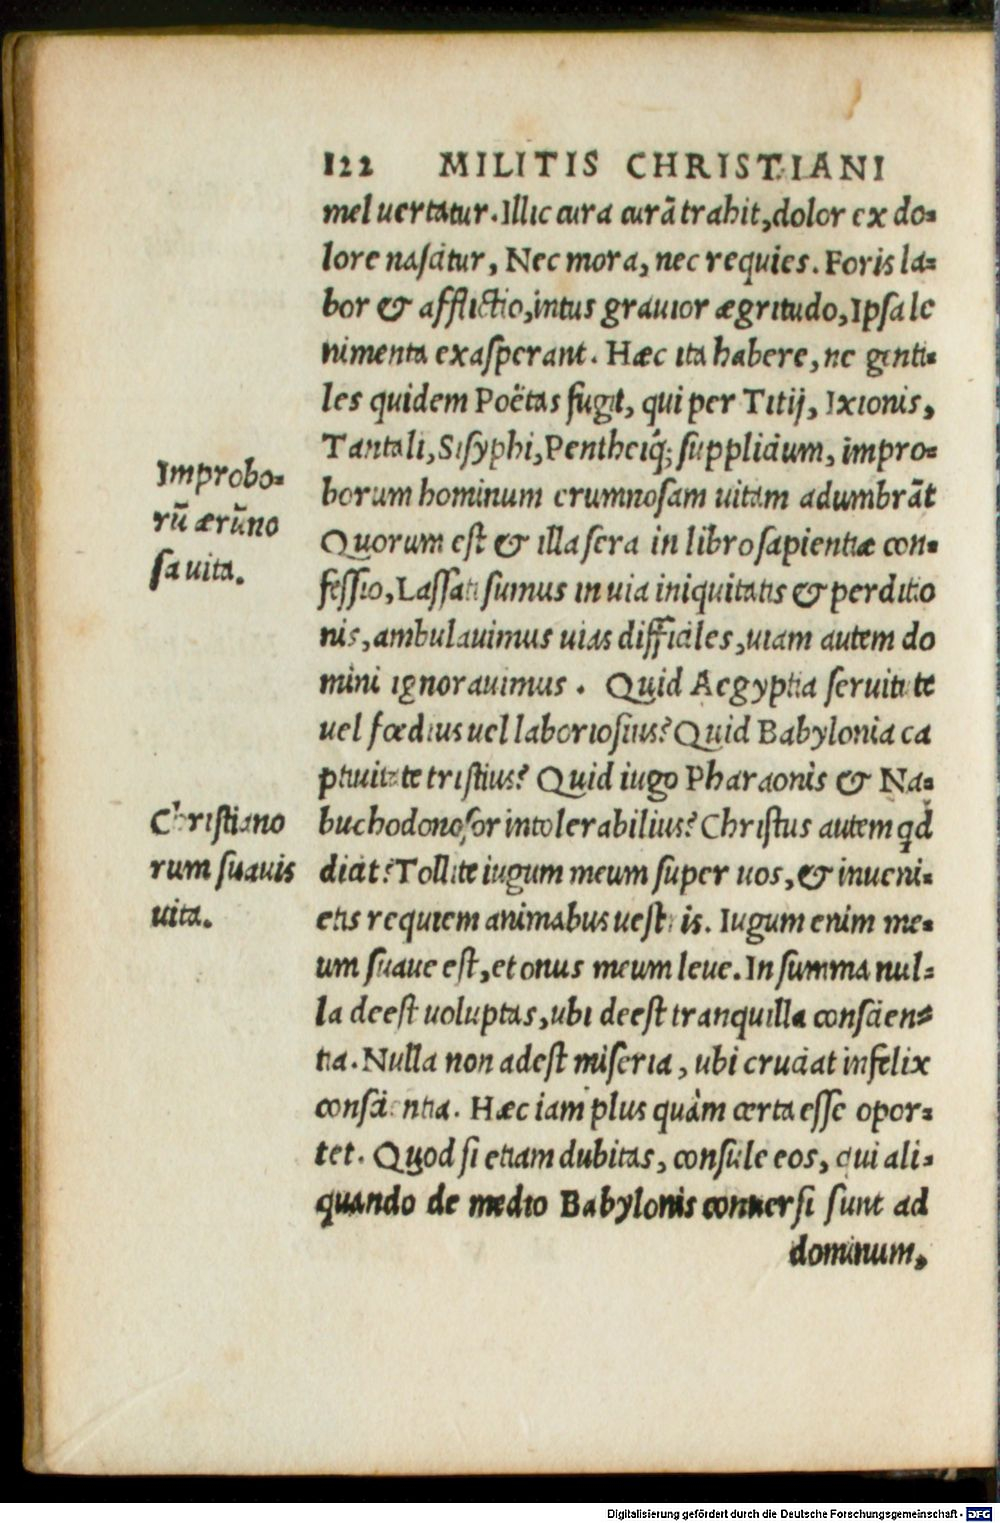 122 MILITIS CHRISTIANI
mel uertatur. Illic cura curā trahit, dolor ex do-
lore nascitur, Nec mora, nec requies. Foris la-
bor & afflictio, intus grauior ægritudo, Ipsa le
nimenta exasperant. Hæc ita habere, ne genti-
les quidem Poëtas fugit, qui per Titij, Ixionis,
Tantali, Sisyphi, Pentheiq́; supplicium, impro-
borum hominum erumnosam uitam adumbrāt
Quorum est & illa sera in libro sapientiæ con-
fessio, Lassati sumus in uia iniquitatis & perditio
nis, ambulauimus uias difficiles, uiam autem do
mini ignorauimus. Quid Aegyptia seruitute
uel fœdius uel laboriosius? Quid Babylonia ca
ptiuitate tristius? Quid iugo Pharaonis & Na-
buchodonosor intolerabilius? Christus autem qd
dicit? Tollite iugum meum super uos, & inueni-
etis requiem animabus uestris. Iugum enim me-
um suaue est, et onus meum leue. In summa nul-
la deest uoluptas, ubi deest tranquilla conscien-
tia. Nulla non adest miseria, ubi cruciat infelix
conscientia. Hæc iam plus quàm certa esse opor-
tet. Quod si etiam dubitas, consule eos, qui ali-
quando de medio Babylonis conuersi sunt ad
dominum,
Improbo-
rū ærūno
sa uita.
Christiano
rum suauis
uita.
Digitalisierung gefördert durch die Deutsche Forschungsgemeinschaft - DFG